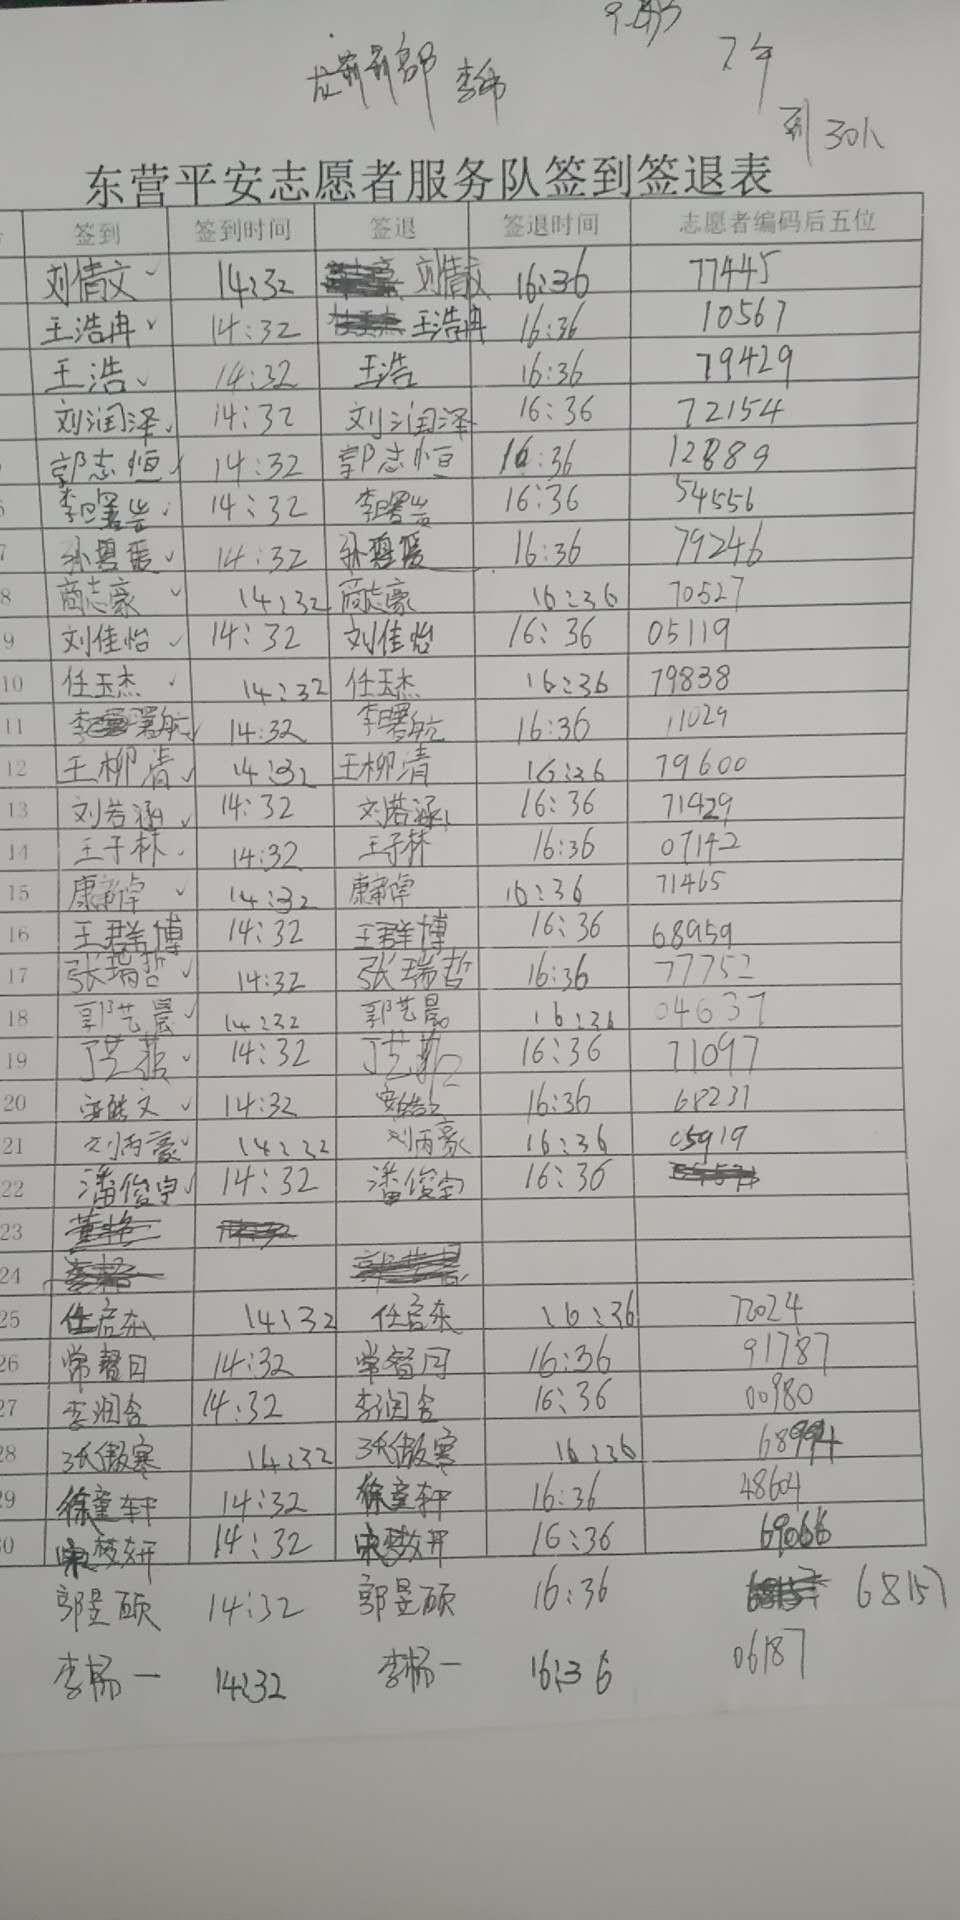 李
下午
到 30人
东营平安志愿者服务队签到签退表
签到 签到时间 签退 签退时间 志愿者编码后五位
刘倩文 14:32 刘倩文 16:36 77445
王浩冉 14:32 王浩冉 16:36 10567
王浩 14:32 王浩 16:36 79429
刘润泽 14:32 刘润泽 16:36 72154
郭志恒 14:32 郭志恒 16:36 12889
6 李曙 14:32 李曙 16:36 54556
7 孙 14:32 孙 16:36 79246
8 商志豪 14:32 商志豪 16:36 70527
9 刘佳怡 14:32 刘佳怡 16:36 05119
10 任玉杰 14:32 任玉杰 16:36 79838
11 李曙航 14:32 李曙航 16:36 11029
12 王柳清 14:32 王柳清 16:36 79600
13 刘若涵 14:32 刘若涵 16:36 71429
14 王子林 14:32 王子林 16:36 07142
15 康 14:32 康 16:36 71465
16 王群博 14:32 王群博 16:36 68959
17 张瑞哲 14:32 张瑞哲 16:36 77752
18 郭艺晨 14:32 郭艺晨 16:36 04637
19 丁艺 14:32 丁艺 16:36 71097
20 14:32 16:36 68231
21 刘丙豪 14:32 刘丙豪 16:36 05919
22 潘俊宇 14:32 潘俊宇 16:36
23
24
25 任启东 14:32 任启东 16:36 72024
26 常智日 14:32 常智日 16:36 91787
27 李润含 14:32 李润含 16:36 00980
28 张傲寒 14:32 张傲寒 16:36 68994
29 徐童轩 14:32 徐童轩 16:36 48604
30 宋梦妍 14:32 宋梦妍 16:36 69066
郭昱硕 14:32 郭昱硕 16:36 68157
李杨一 14:32 李杨一 16:36 06187